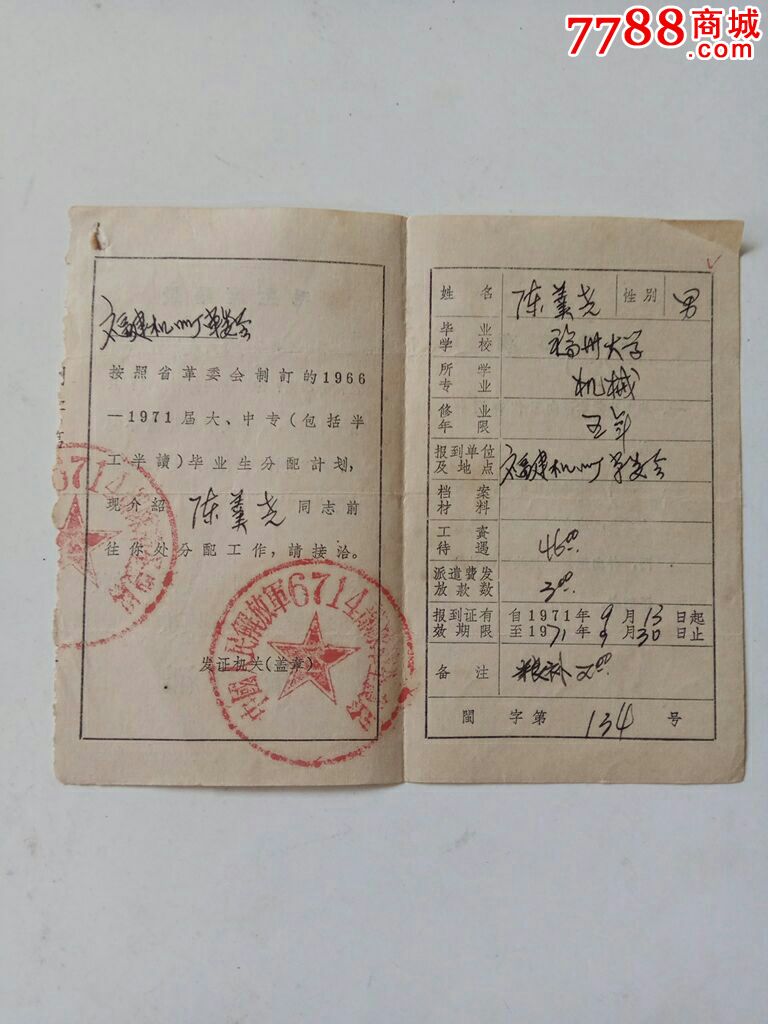 7788商城
.com
福建机口厂革委会
按照省革委会制訂的1966
—1971届大、中专(包括半
工半讀)毕业生分配计划,
现介紹 陈美尧 同志前
往你处分配工作,請接洽。
发证机关(盖章)
中國人民解放軍6714
6714
姓名 陈美尧 性别 男
毕业学校 福州大学
所学专业 机械
修业年限 五年
报到单位及地点 福建机口厂革委会
档案材料
工资待遇 46.00
派遣费发放款数 3.00
报到证有效期限 自1971年9月13日起
至1971年9月30日止
备注 粮补 2.00
閩字第 134 号